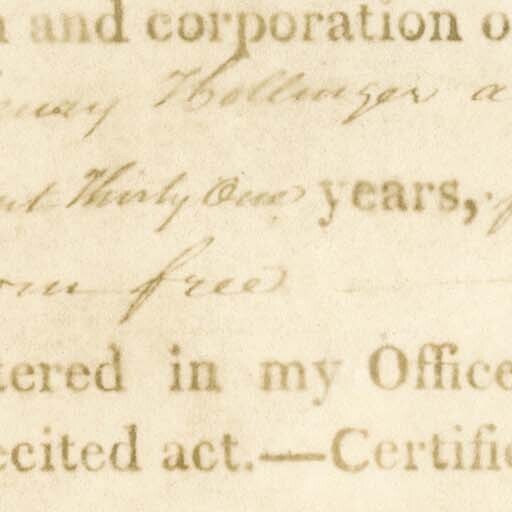 and corporation o
Hollinger a
Thirty One years,
free
tered in my Office
ecited act.—Certific